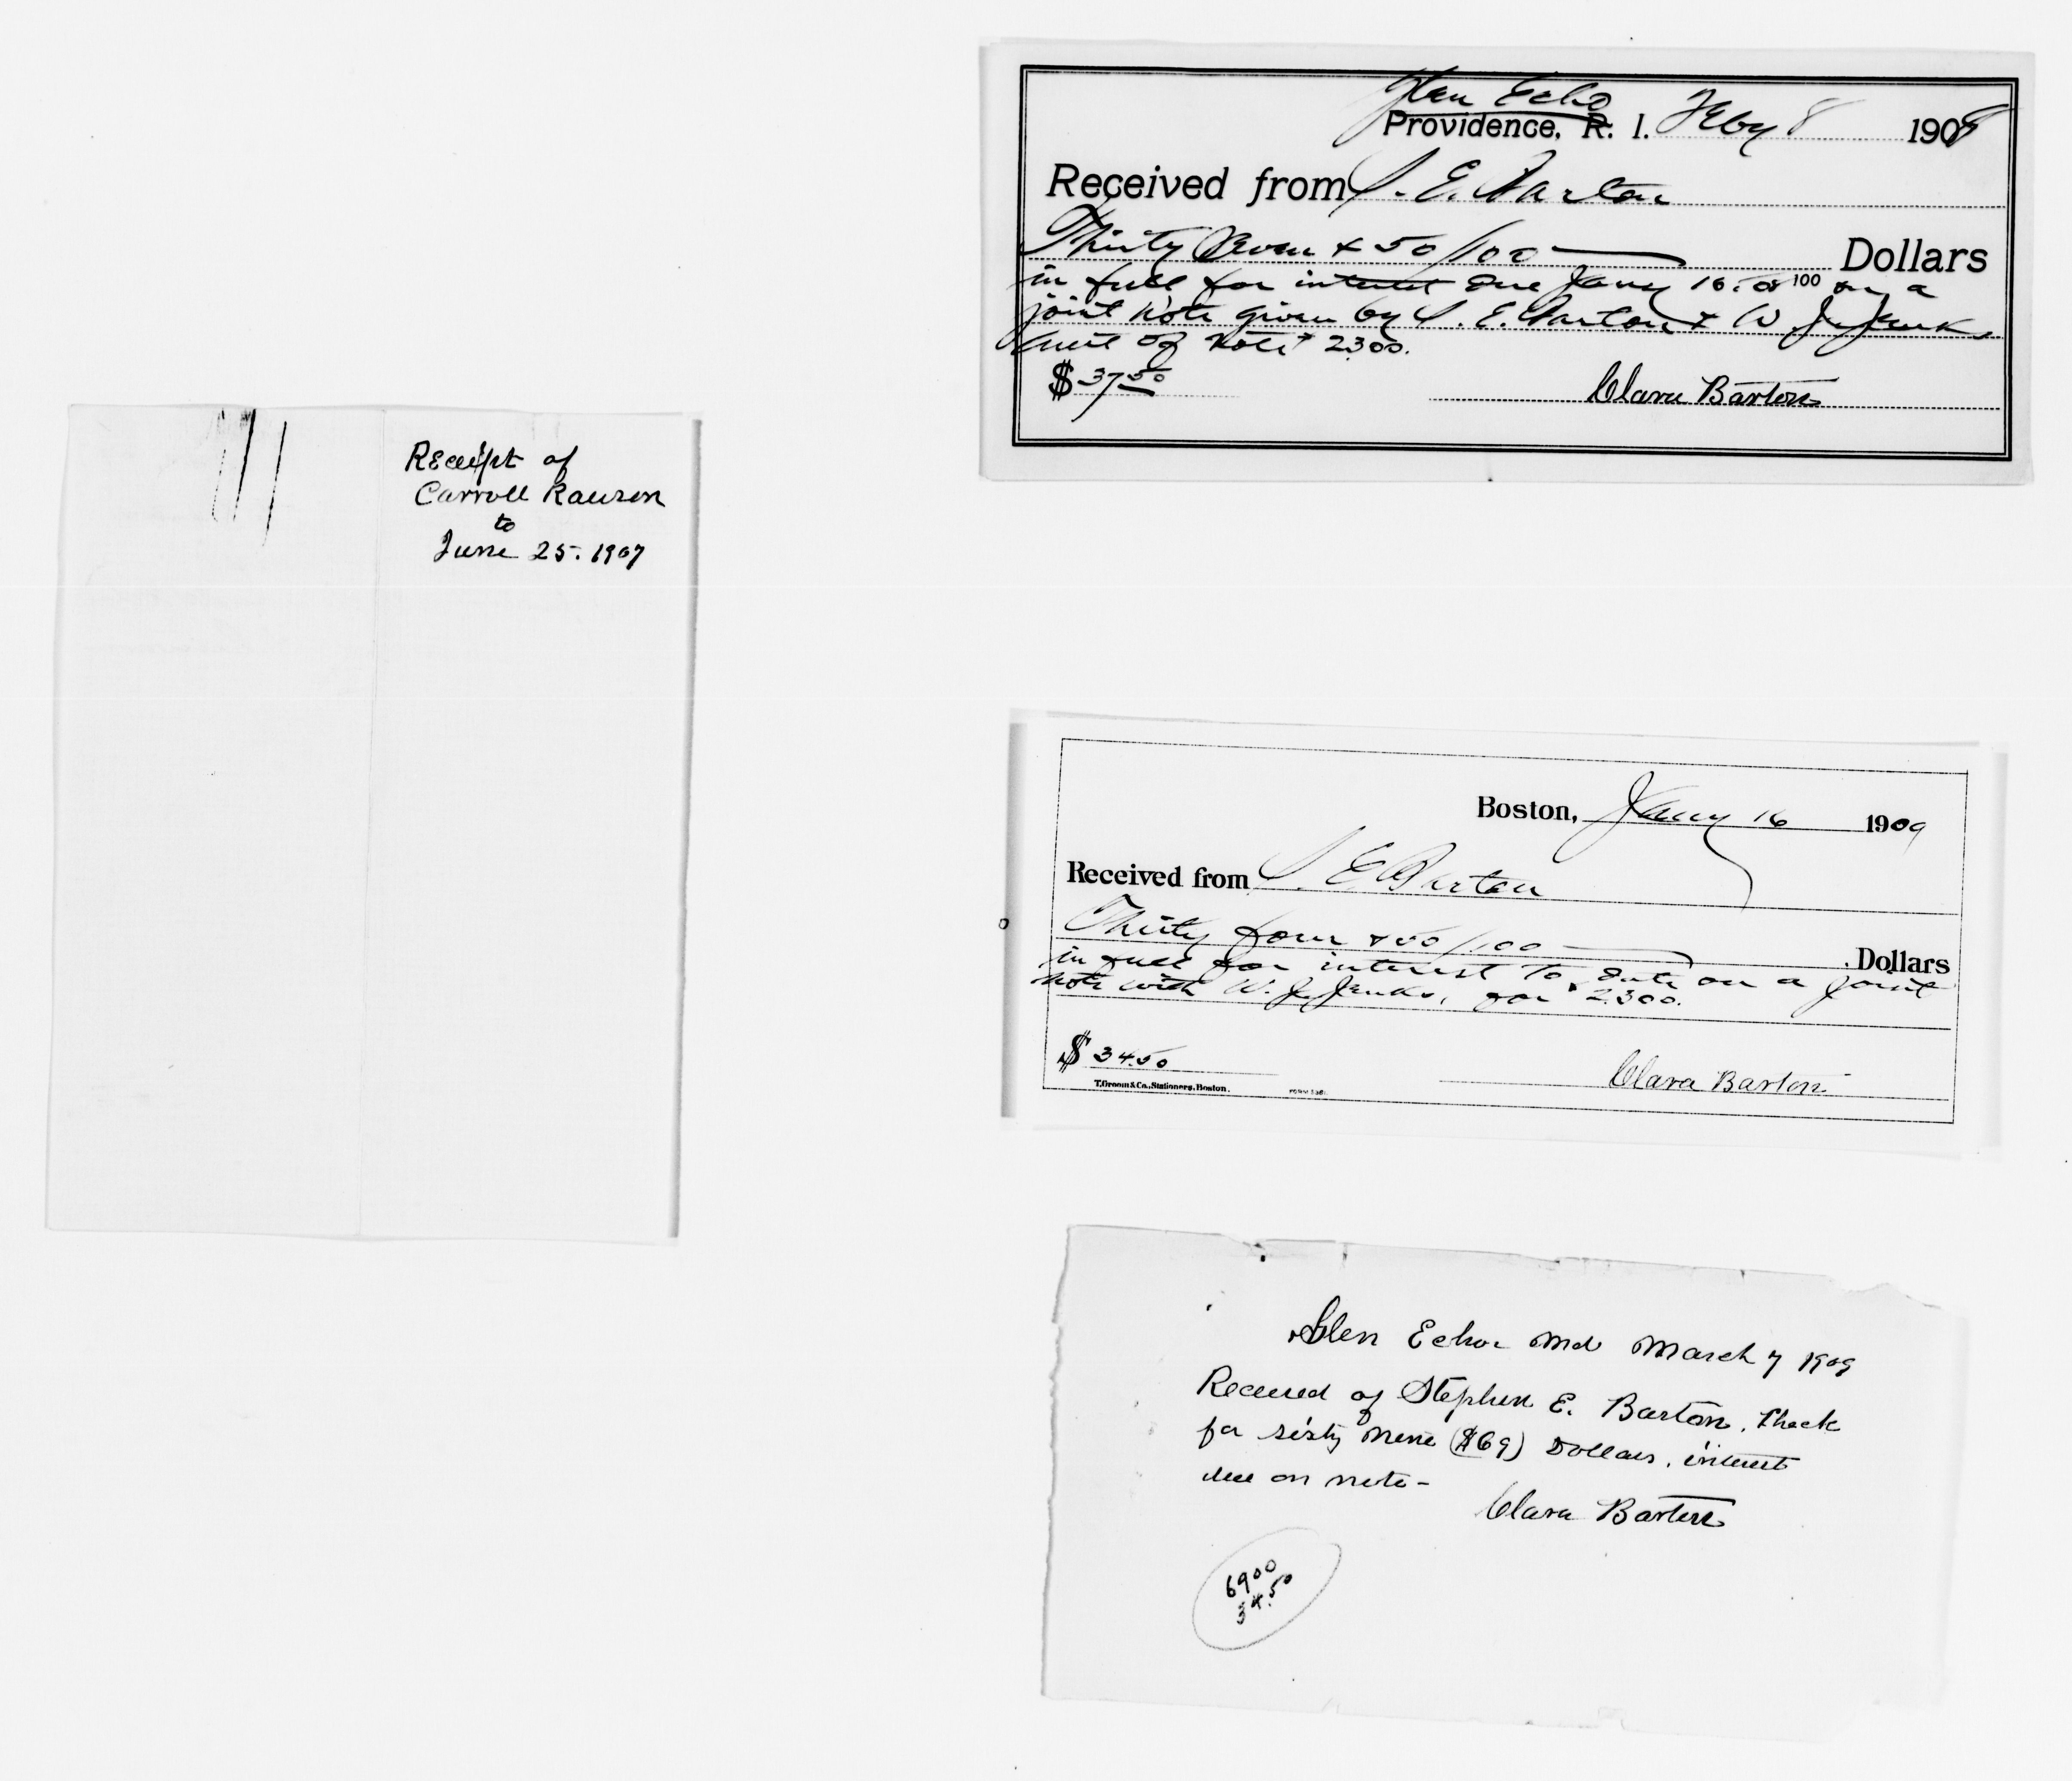 Receipt of
Carroll Rawson
to
June 25. 1907
Glen Echo
Providence, R. I. Feby 8 1908
Received from S. E. Barton
Thirty Seven + 50/100 Dollars
in full for interest due Jany 16. 08 100 on a
joint note given by S. E. Barton + W. J. Jenks
amt of note $2300.
$37.50 Clara Barton
Boston, Jany 16 1909
Received from S. E. Barton
Thirty four + 50/100 Dollars
in full for interest to date on a joint
note with W. J. Jenks, for $2300.
$34.50 Clara Barton
T. Groom & Co., Stationers, Boston.
Glen Echo Md March 7 1909
Received of Stephen E. Barton, Check
for sixty nine ($69) Dollars, interest
due on note -
Clara Barton
6900
34.50